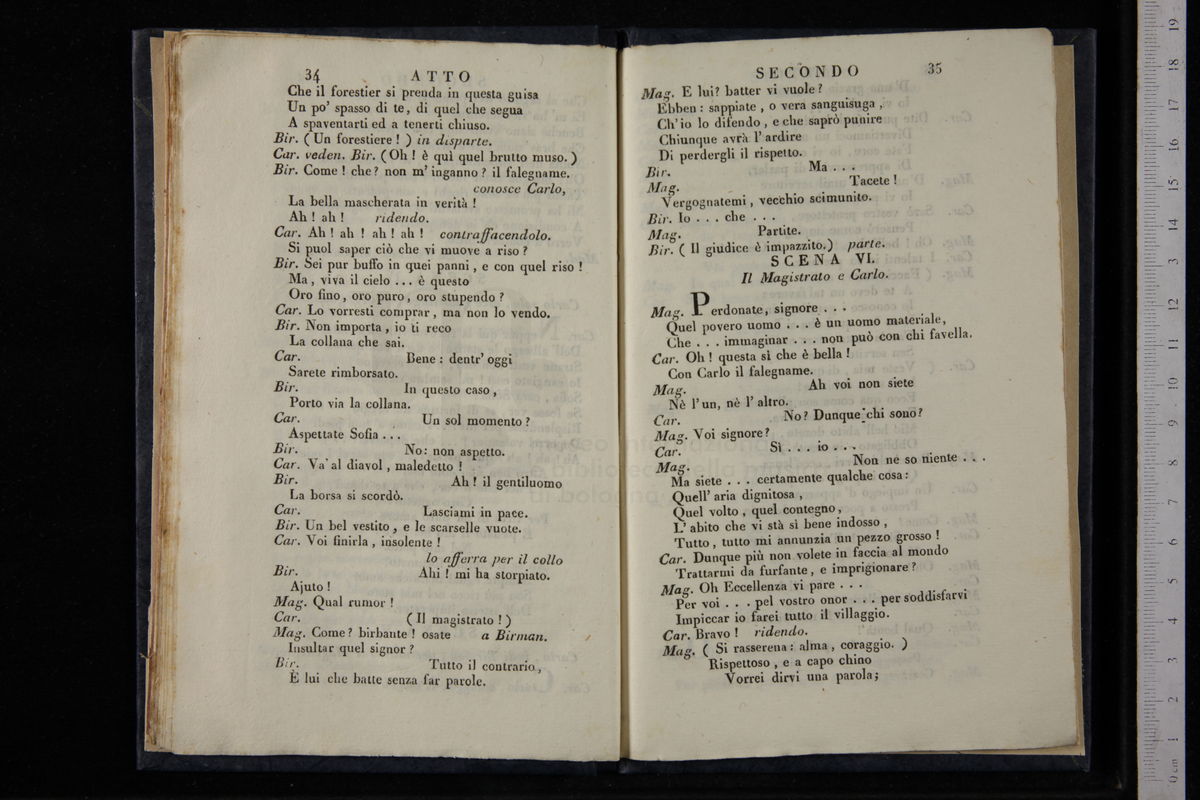 34 ATTO
Che il forestier si prenda in questa guisa
Un po' spasso di te, di quel che segua
A spaventarti ed a tenerti chiuso.
Bir. ( Un forestiere ! ) in disparte.
Car. veden. Bir. ( Oh ! è quì quel brutto muso. )
Bir. Come ! che ? non m' inganno ? il falegname.
conosce Carlo,
La bella mascherata in verità !
Ah ! ah ! ridendo.
Car. Ah ! ah ! ah ! ah ! contraffacendolo.
Si puol saper ciò che vi muove a riso ?
Bir. Sei pur buffo in quei panni , e con quel riso !
Ma , viva il cielo ... è questo
Oro fino, oro puro , oro stupendo ?
Car. Lo vorresti comprar , ma non lo vendo.
Bir. Non importa , io ti reco
La collana che sai.
Car. Bene : dentr' oggi
Sarete rimborsato.
Bir. In questo caso ,
Porto via la collana.
Car. Un sol momento ?
Aspettate Sofia ...
Bir. No: non aspetto.
Car. Va' al diavol , maledetto !
Bir. Ah ! il gentiluomo
La borsa si scordò.
Car. Lasciami in pace.
Bir. Un bel vestito , e le scarselle vuote.
Car. Voi finirla , insolente !
lo afferra per il collo
Bir. Ahi ! mi ha storpiato.
Ajuto !
Mag. Qual rumor !
Car. ( Il magistrato ! )
Mag. Come ? birbante ! osate a Birman.
Insultar quel signor ?
Bir. Tutto il contrario ,
È lui che batte senza far parole.
SECONDO 35
Mag. E lui? batter vi vuole ?
Ebben : sappiate , o vera sanguisuga ,
Ch' io lo difendo , e che saprò punire
Chiunque avrà l' ardire
Di perdergli il rispetto.
Bir. Ma . . .
Mag. Tacete !
Vergognatemi , vecchio scimunito.
Bir. Io . . . che . . .
Mag. Partite.
Bir. ( Il giudice è impazzito.) parte.
SCENA VI.
Il Magistrato e Carlo.
Mag. Perdonate, signore . . .
Quel povero uomo . . . è un uomo materiale,
Che . . . immaginar . . . non può con chi favella.
Car. Oh ! questa sì che è bella !
Con Carlo il falegname.
Mag. Ah voi non siete
Nè l' un, nè l' altro.
Car. No? Dunque chi sono?
Mag. Voi signore?
Car. Sì . . . io . . .
Mag. Non ne so niente . . .
Ma siete . . . certamente qualche cosa:
Quell' aria dignitosa ,
Quel volto , quel contegno,
L' abito che vi stà sì bene indosso ,
Tutto , tutto mi annunzia un pezzo grosso !
Car. Dunque più non volete in faccia al mondo
Trattarmi da furfante , e imprigionare ?
Mag. Oh Eccellenza vi pare . . .
Per voi . . . pel vostro onor . . . per soddisfarvi
Impiccar io farei tutto il villaggio.
Car. Bravo ! ridendo.
Mag. ( Si rasserena : alma , coraggio. )
Rispettoso , e a capo chino
Vorrei dirvi una parola;